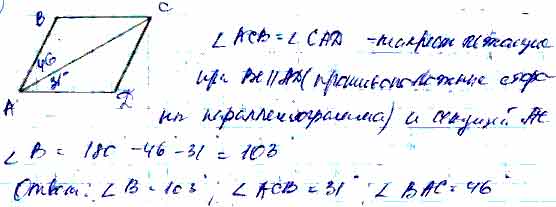 B C
46
31°
A D
∠ACB = ∠CAD - накрест лежащие
при BC || AD (противоположные сторо-
ны параллелограмма) и секущей AC
∠B = 180 - 46 - 31 = 103°
Ответ: ∠B = 103°, ∠ACB = 31° ∠BAC = 46°